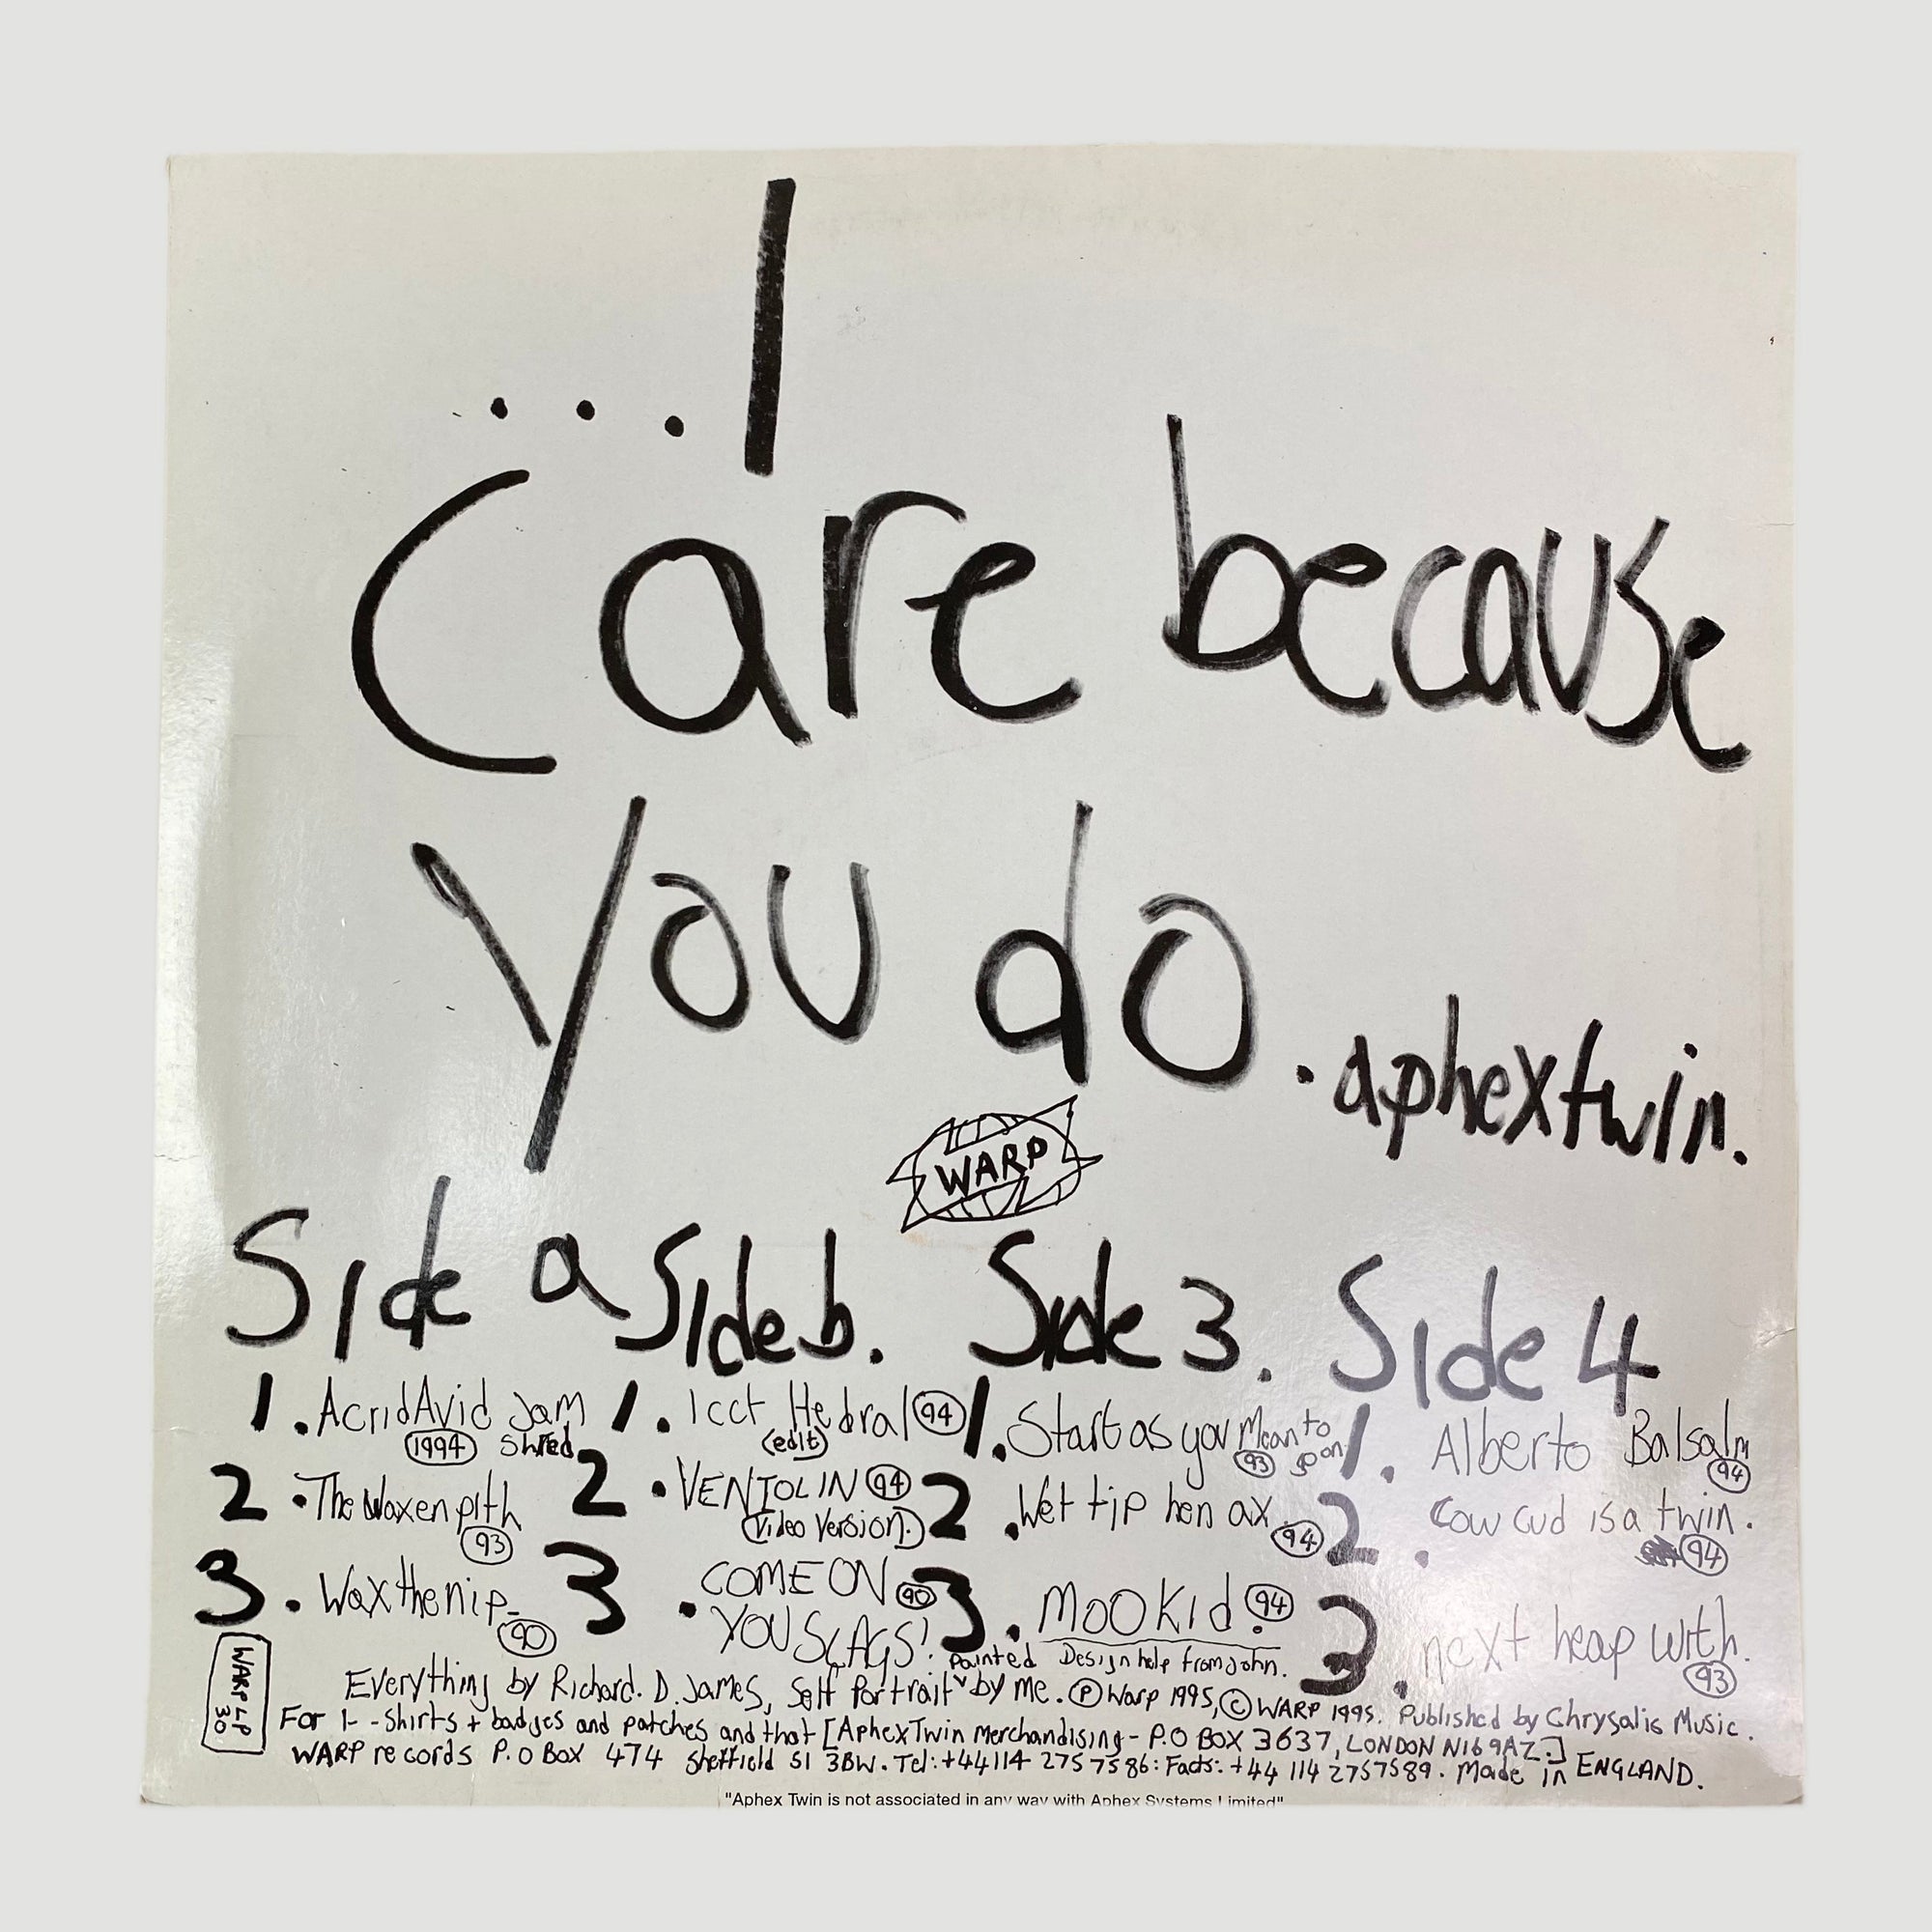 ...I
Care because
you do.
aphextwin.
WARP
Side a
1. AcridAvid Jam
1994 Shred
2. The Waxen pith
93
3. Wax the nip
90
Side b.
1. Icct Hedral 94
(edit)
2. VENTOLIN 94
(Video Version.)
3. COME ON 90
YOU SLAGS!
Side 3.
1. Start as you Mean to
93 go on
2. Wet tip hen ax.
94
3. MOOKid. 94
Side 4
1. Alberto Balsalm
94
2. Cow cud is a twin.
94
3. next heap with.
93
WARP LP
30
Painted Design help from John.
Everything by Richard. D. James, Self Portrait by me. Ⓟ Warp 1995, © WARP 1995. Published by Chrysalis Music.
For T-Shirts + badges and patches and that [AphexTwin Merchandising - P.O BOX 3637, LONDON N16 9AZ.]
WARP records P.O Box 474 Sheffield S1 3BW. Tel: +44 114 2757586: Facts: +44 114 2757589. Made in ENGLAND.
"Aphex Twin is not associated in any way with Aphex Systems Limited"